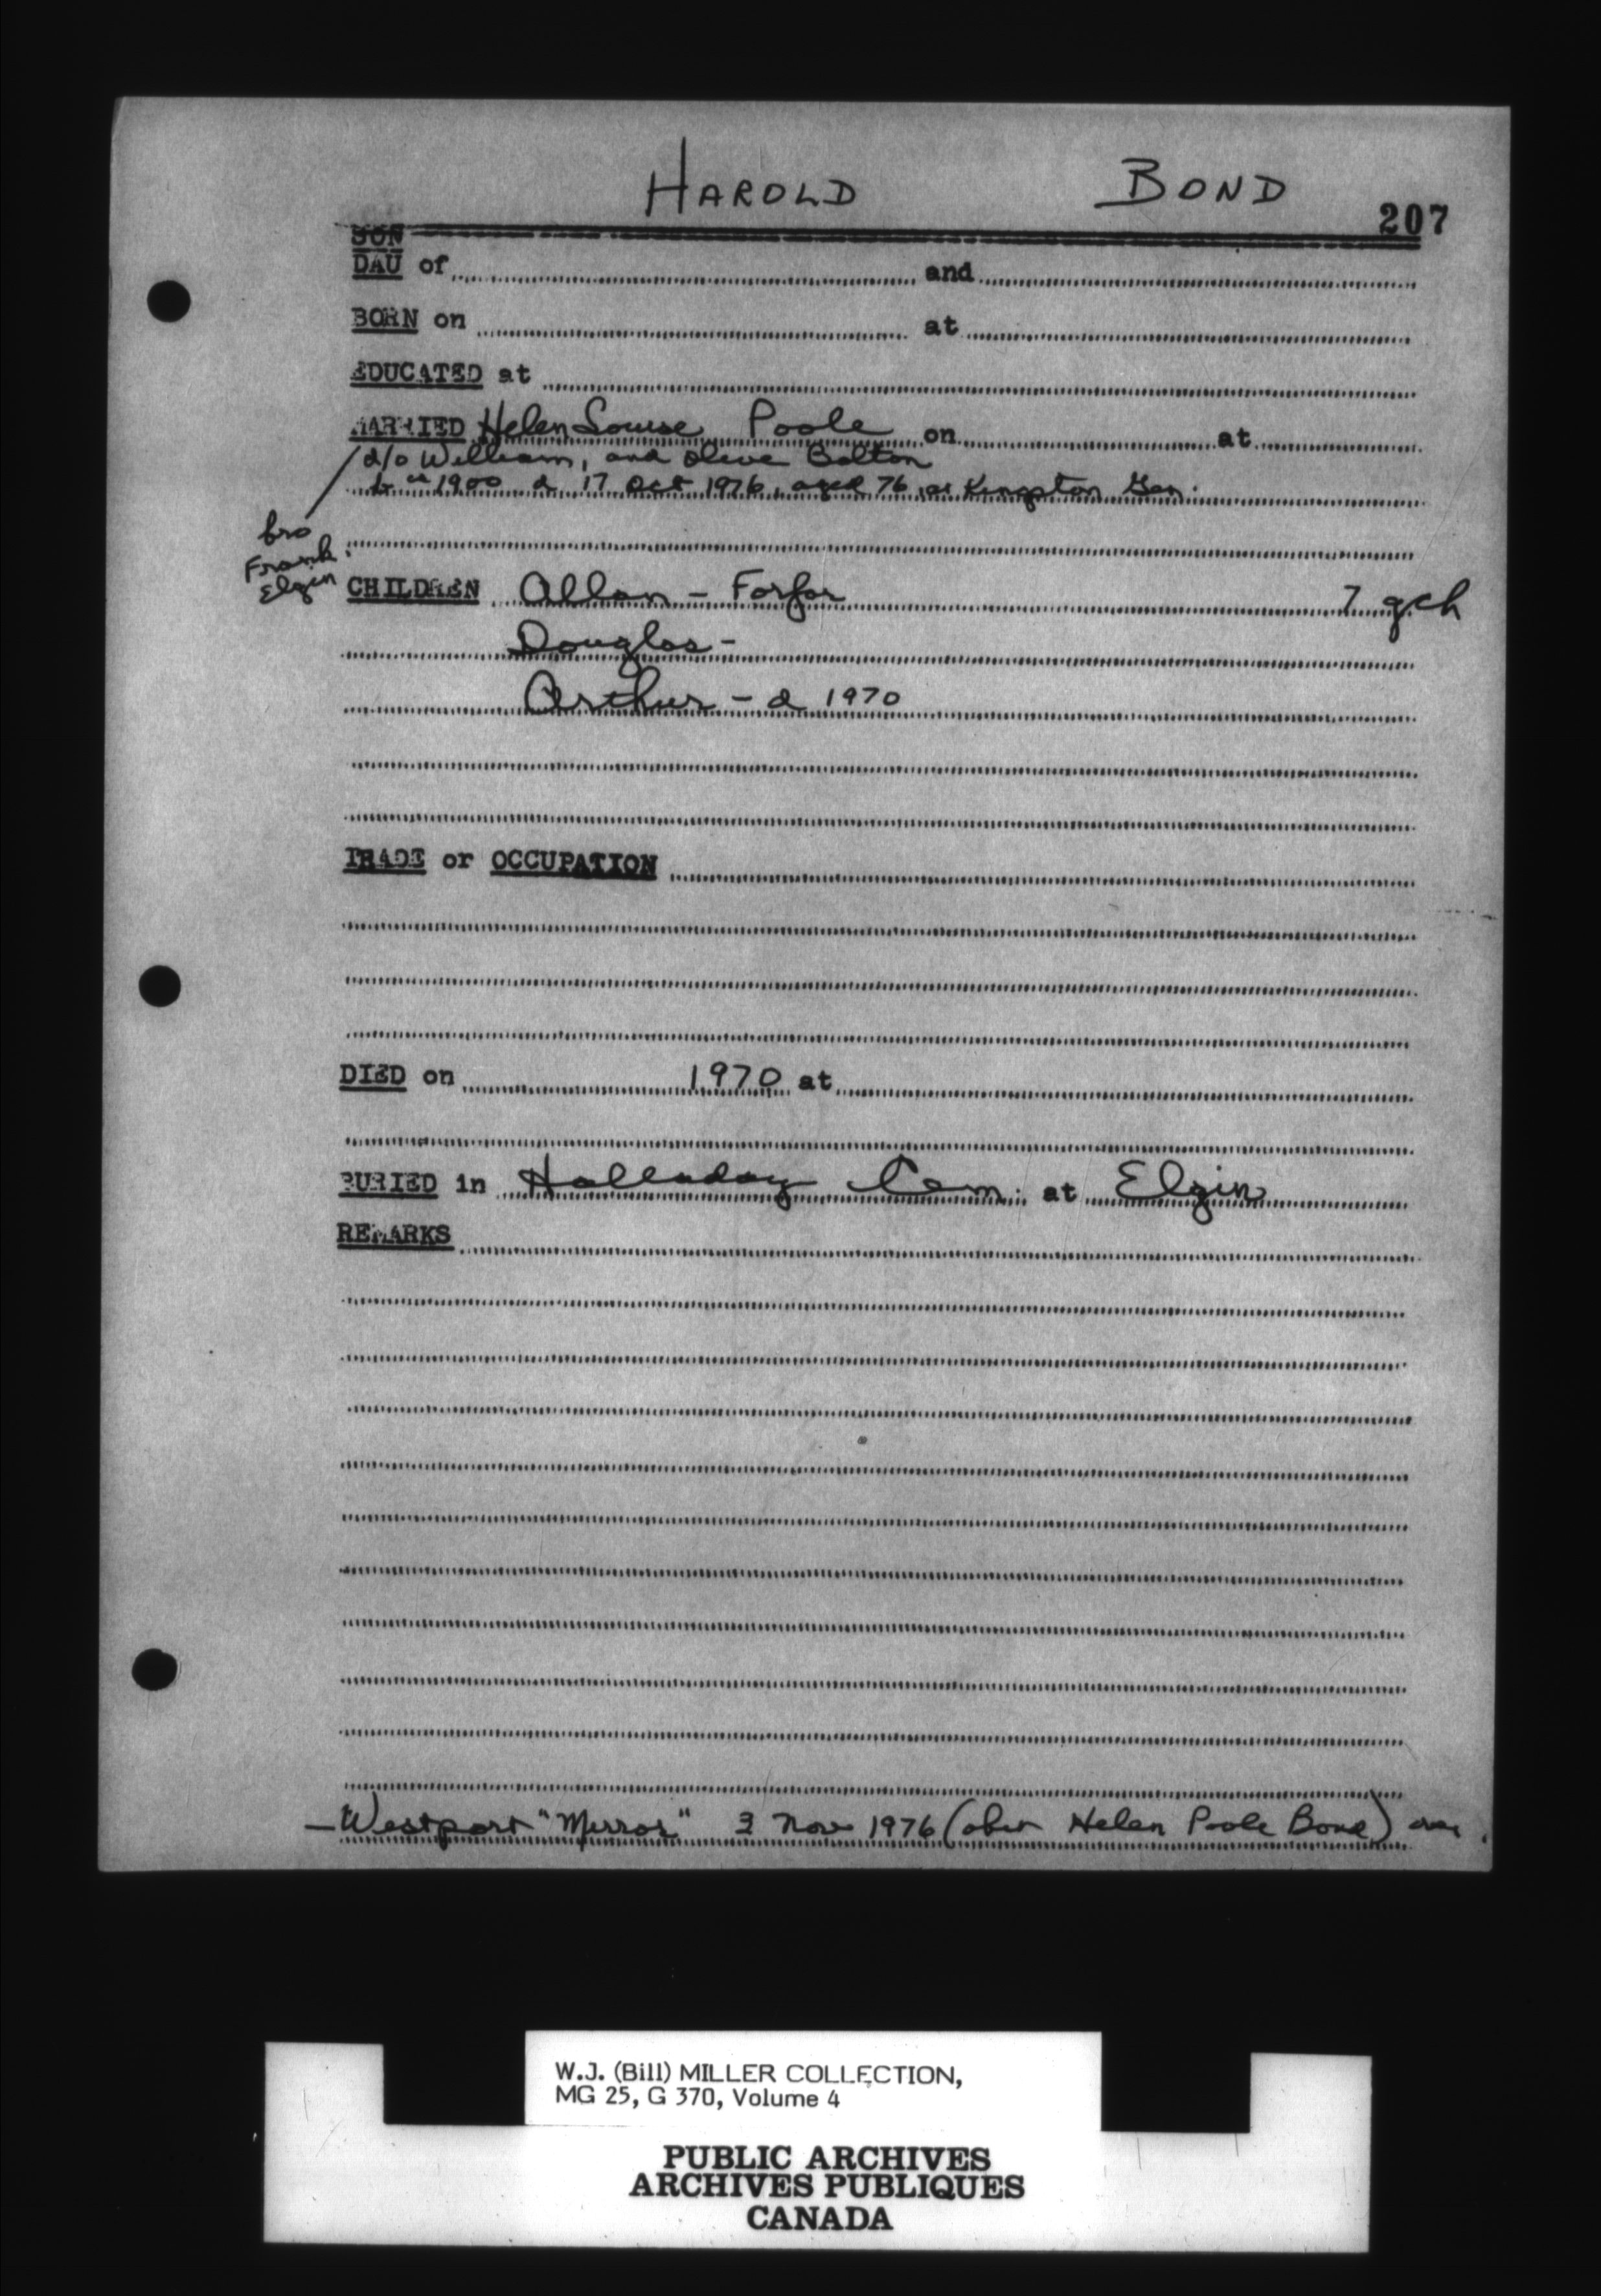 HAROLD BOND
207
SON
DAU of and
BORN on at
EDUCATED at
MARRIED Helen Louise Poole on at
d/o William, and Olive Bolton
b ca 1900 d 17 Oct 1976, aged 76, at Kingston Gen.
bro
Frank
Elgin
CHILDREN Allan - Forfar 7 gch
Douglas -
Arthur - d 1970
TRADE or OCCUPATION
DIED on 1970 at
BURIED in Halladay Cem. at Elgin
REMARKS
- Westport "Mirror" 3 Nov 1976 (obit Helen Poole Bond)
W.J. (Bill) MILLER COLLECTION,
MG 25, G 370, Volume 4
PUBLIC ARCHIVES
ARCHIVES PUBLIQUES
CANADA